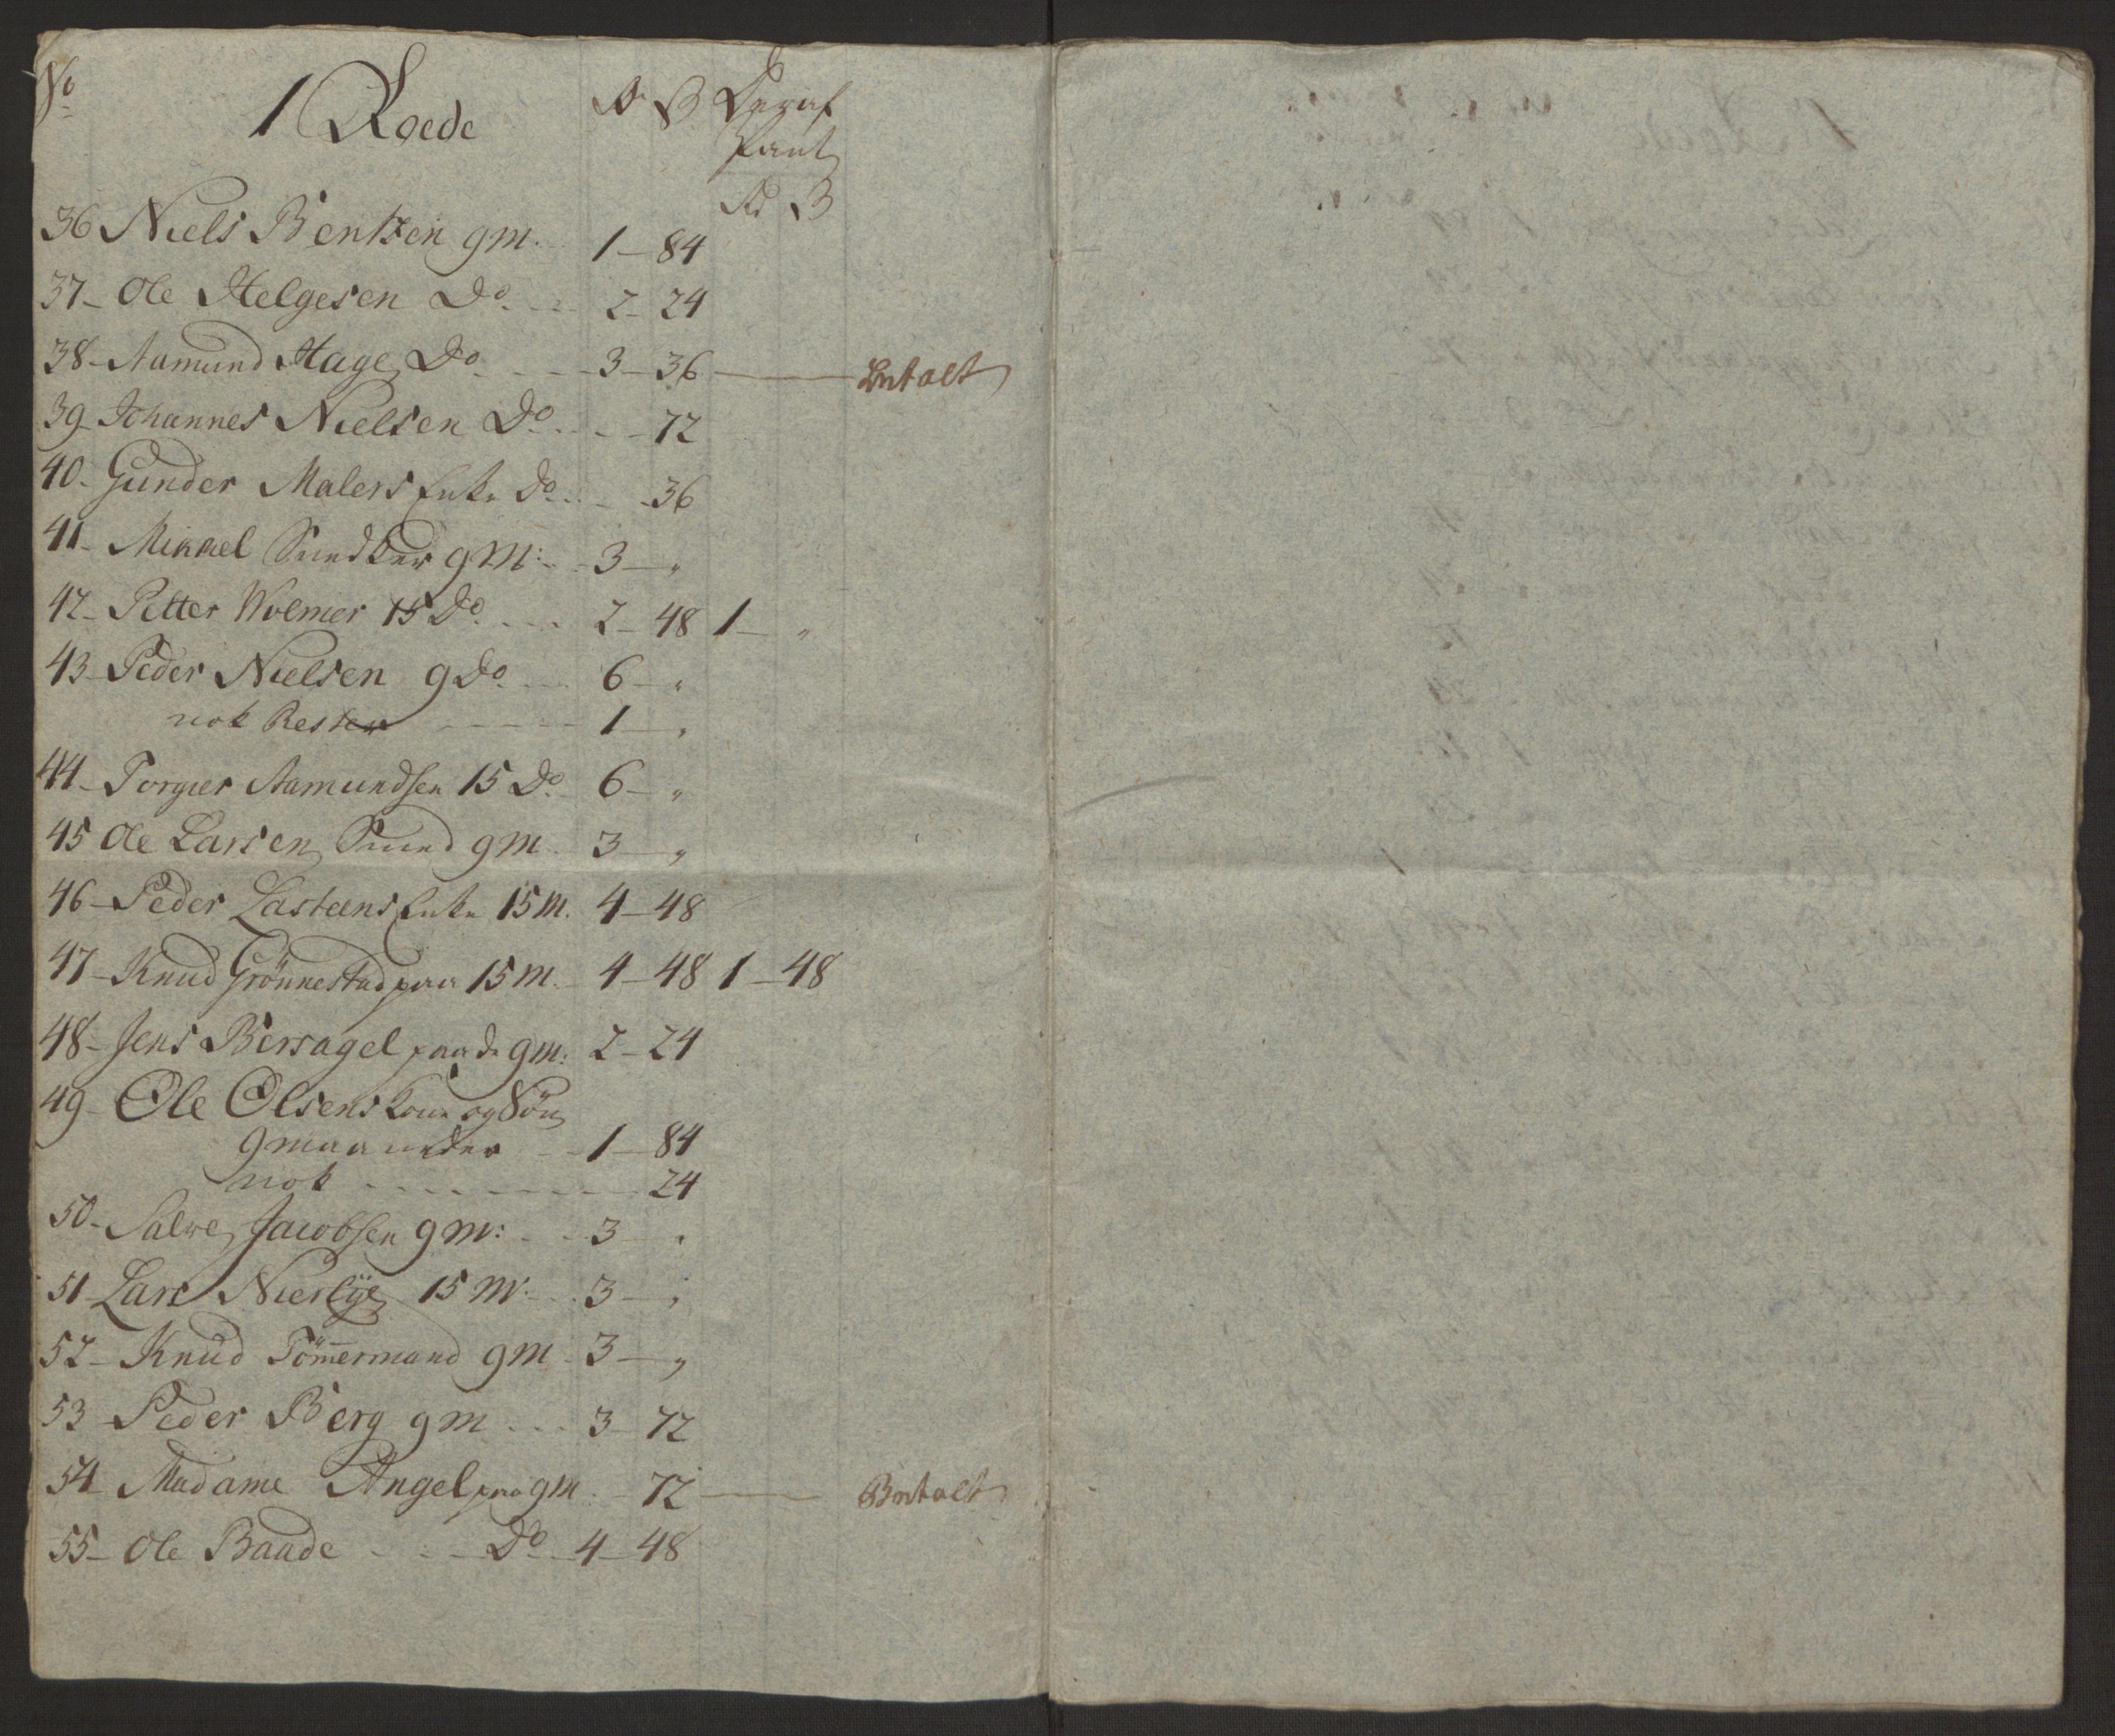 No
1 Roede Rd ß Deraf
Pant
Rd ß
36 Niels Bentzen 9 M. 1 - 84
37 - Ole Helgesen Do 2 - 24
38 - Aamund Hage Do 3 - 36 Betalt
39 - Johannes Nielsen Do 72
40 - Gunder Malers Enke Do 36
41 - Mikkel 9 M: 3 - "
42 - Petter Wolmer 15 Do 2 - 48 1 - "
43 - Peder Nielsen 9 Do 6 - "
nok Rester 1 - "
44 - Torgier Aamundsen 15 Do 6 - "
45 Ole Larsen Smed 9 M. 3 - "
46 - Peder Lasteens Enke 15 M. 4 - 48
47 - Knud Grönnestad paa 15 M. 4 - 48 1 - 48
48 - Jens Bersagel paa Do 9 M: 2 - 24
49 - Ole Olsens Kone og Sön
9 maaneder 1 - 84
nok 24
50 - Salve Jacobsen 9 M: 3 "
51 Lars Nierlÿe 15 M. 3 - "
52 - Knud Tömmermand 9 M 3 - "
53 Peder Berg 9 M 3 - 72
54 Madame Angel paa 9 M. 72 Betalt
55 - Ole Baade Do 4 - 48